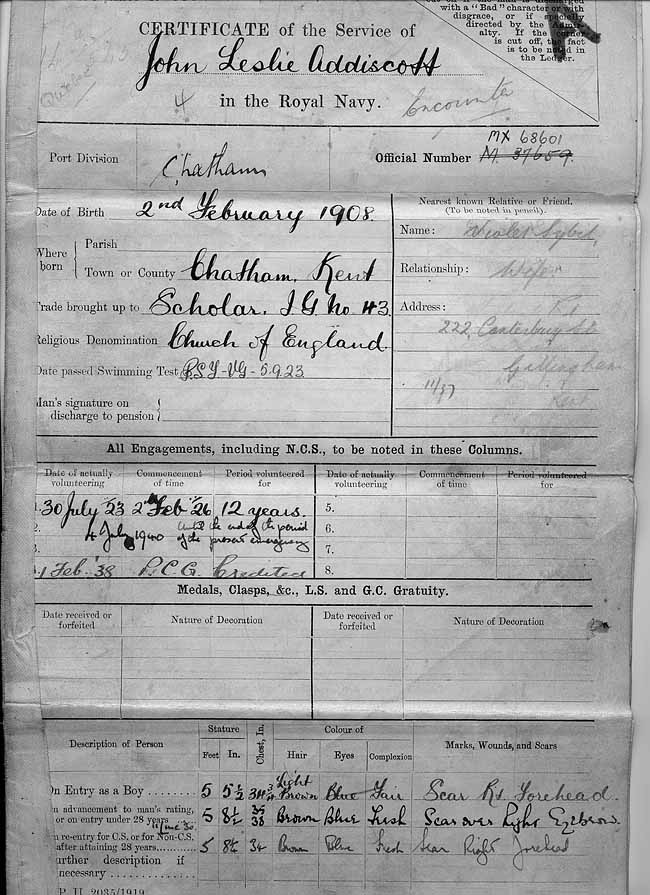 with a "Bad" character or with
disgrace, or if specially
directed by the Admir-
alty. If the corner
is cut off, the fact
is to be noted in
the Ledger.
CERTIFICATE of the Service of
John Leslie Addiscott
in the Royal Navy.
Encounter
MX 68601
Port Division Chatham Official Number M. 37659.
Date of Birth 2nd February 1908
Where born
Parish
Town or County Chatham, Kent
Trade brought up to Scholar. I G No. 43.
Religious Denomination Church of England.
Date passed Swimming Test 5.9.23
Man's signature on
discharge to pension
Nearest known Relative or Friend.
(To be noted in pencil).
Name: Violet Sybil,
Relationship: Wife
Address:
222, Canterbury St
Gillingham
Kent
11/37
All Engagements, including N.C.S., to be noted in these Columns.
Date of actually volunteering Commencement of time Period volunteered for Date of actually volunteering Commencement of time Period volunteered for
1. 30 July '23 2nd Feb '26 12 years. 5.
2. 4 July 1940 until the end of the period of the present emergency 6.
3. 7.
4. 1 Feb. '38 Credited 8.
Medals, Clasps, &c., L.S. and G.C. Gratuity.
Date received or forfeited Nature of Decoration Date received or forfeited Nature of Decoration
Description of Person Stature Feet In. Chest, In. Colour of Hair Eyes Complexion Marks, Wounds, and Scars
On Entry as a Boy ........ 5 5½ 34¾ Light Brown Blue Fair Scar Rt Forehead.
on advancement to man's rating, or on entry under 28 years 5 8½ 35 38 Brown Blue Fresh Scar over Right Eyebrow.
On re-entry for C.S. or for Non-C.S. after attaining 28 years 5 8½ 34 Brown Blue Fresh Scar Right forehead
Further description if
necessary
P. H. 2035/1919